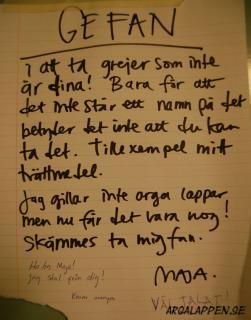 GE FAN
i att ta grejer som inte
är dina! Bara för att
det inte står ett namn på det
betyder det inte att du kan
ta det. Till exempel mitt
tvättmedel.
Jag gillar inte arga lappar
men nu får det vara nog!
Skämmes ta mig fan.
MAJA.
Maja!
Jag stal från dig!
Kram
VÄL TALAT!
ARGALAPPEN.SE